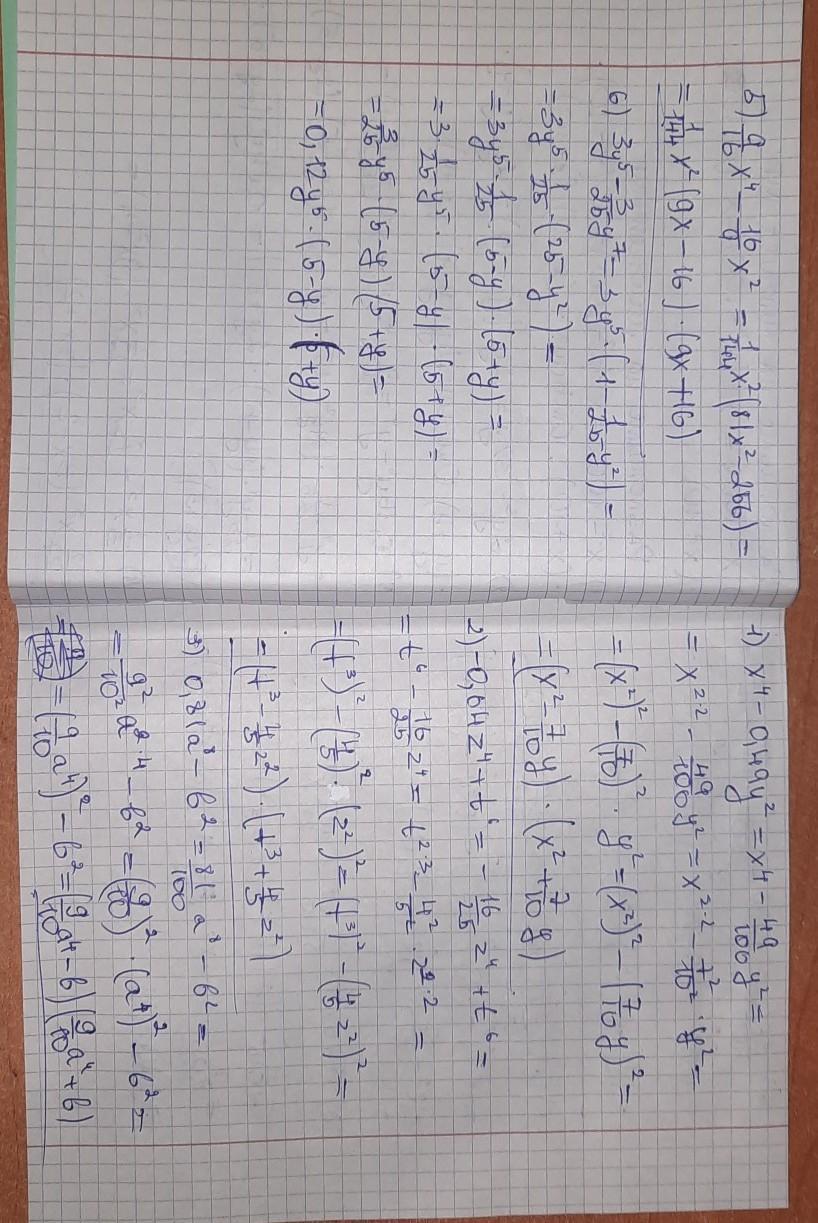 5) 9/16 x⁴ - 16/9 x² = 1/144 x² (81x² - 256) =
= 1/144 x² (9x - 16) · (9x + 16)
6) 3y⁵ - 3/25 y⁷ = 3y⁵ · (1 - 1/25 y²) =
= 3y⁵ · 1/25 · (25 - y²) =
= 3y⁵ · 1/25 · (5 - y) · (5 + y) =
= 3 1/25 y⁵ · (5 - y) · (5 + y) =
= 3/25 y⁵ · (5 - y) (5 + y) =
= 0,12y⁵ · (5 - y) · (5 + y)
1) x⁴ - 0,49y² = x⁴ - 49/100 y² =
= x²·² - 49/100 y² = x²·² - 7²/10² · y² =
= (x²)² - (7/10)² · y² = (x²)² - (7/10 y)² =
= (x² - 7/10 y) · (x² + 7/10 y)
2) -0,64z⁴ + t⁶ = -16/25 z⁴ + t⁶ =
= t⁶ - 16/25 z⁴ = t²·³ - 4²/5² · z²·² =
= (t³)² - (4/5)² · (z²)² = (t³)² - (4/5 z²)² =
= (t³ - 4/5 z²) · (t³ + 4/5 z²)
3) 0,81a⁸ - b² = 81/100 · a⁸ - b² =
= 9²/10² a²·⁴ - b² = (9/10)² · (a⁴)² - b² =
= (9/10 a⁴)² - b² = (9/10 a⁴ - b) (9/10 a⁴ + b)